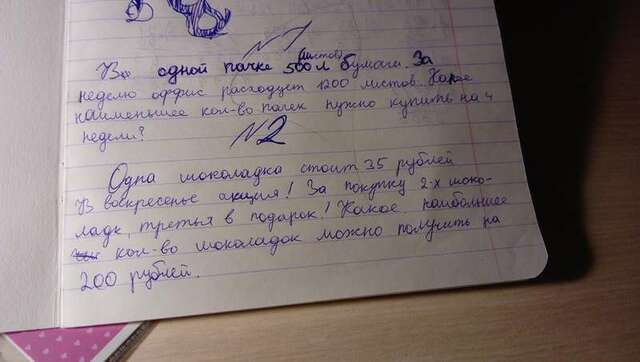 N1
В одной пачке 500 л бумаги. За
(листов)
неделю офис расходует 1200 листов. Какое
наименьшее кол-во пачек нужно купить на 4
недели?
N2
Одна шоколадка стоит 35 рублей
В воскресенье акция! За покупку 2-х шоко-
ладок, третья в подарок! Какое наибольшее
кол-во шоколадок можно получить на
200 рублей.